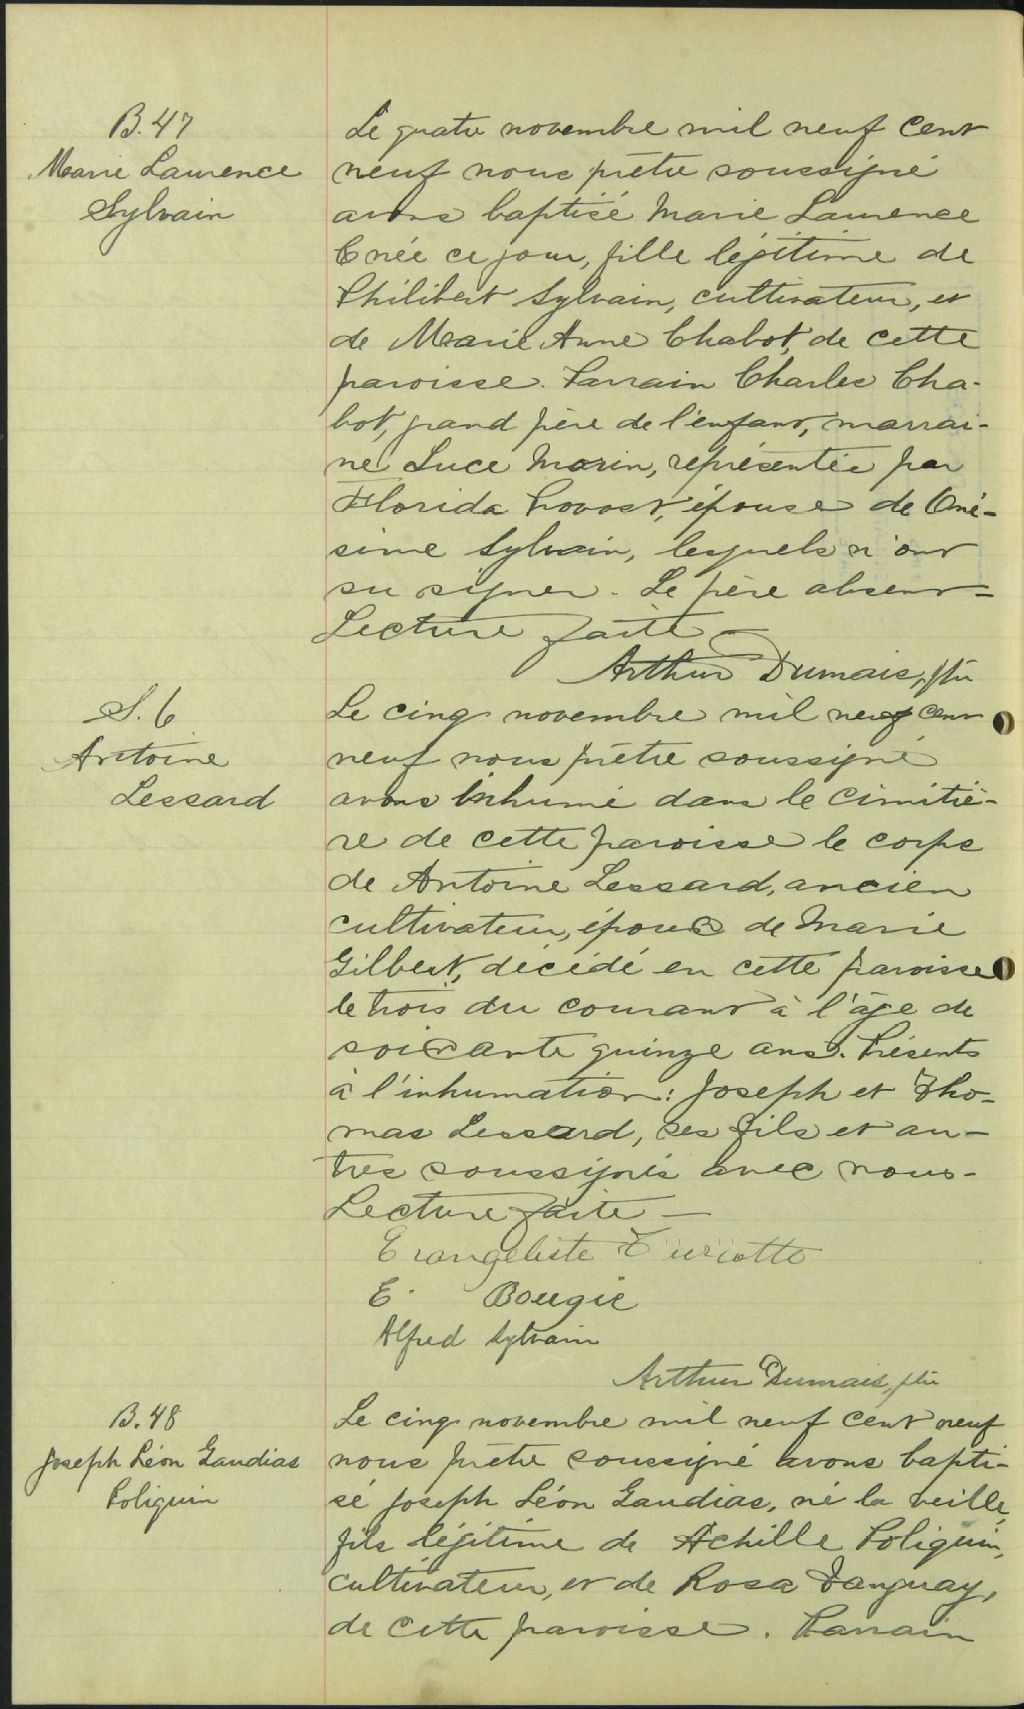 B. 47
Marie Laurence
Sylvain
Le quatre novembre mil neuf cent
neuf nous prêtre soussigné
avons baptisé Marie Laurence
née ce jour, fille légitime de
Philibert Sylvain, cultivateur, et
de Marie Anne Chabot, de cette
paroisse. Parrain Charles Cha-
bot, grand père de l'enfant, marrai-
ne Luce Morin, représentée par
Florida Provost, épouse de Oné-
sime Sylvain, lesquels n'ont
su signer. Le père absent -
Lecture faite -
Arthur Dumais, ptre
S. 6
Antoine
Lessard
Le cinq novembre mil neuf cent
neuf nous prêtre soussigné
avons inhumé dans le cimitiè-
re de cette paroisse le corps
de Antoine Lessard, ancien
cultivateur, époux de Marie
Gilbert, décédé en cette paroisse
le trois du courant à l'âge de
soixante quinze ans. Présents
à l'inhumation: Joseph et Tho-
mas Lessard, ses fils et au-
tres soussignés avec nous -
Lecture faite -
Evangeliste Turcotte
E. Bougie
Alfred Sylvain
Arthur Dumais, ptre
B. 48
Joseph Léon Gaudias
Poliquin
Le cinq novembre mil neuf cent neuf
nous prêtre soussigné avons bapti-
sé Joseph Léon Gaudias, né la veille,
fils légitime de Achille Poliquin,
cultivateur, et de Rosa Tanguay,
de cette paroisse. Parrain